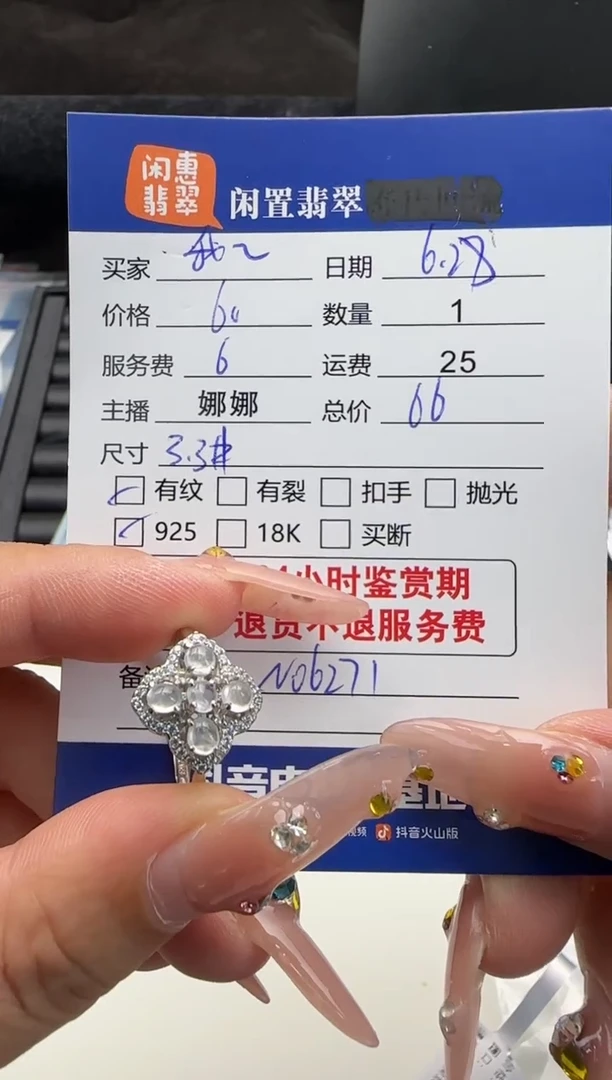 闲惠
翡翠
闲置翡翠
买家 日期 6.28
价格 60 数量 1
服务费 6 运费 25
主播 娜娜 总价 66
尺寸 3.3#
有纹 有裂 扣手 抛光
925 18K 买断
小时鉴赏期
退货不退服务费
备 N06271
抖音
视频 抖音火山版